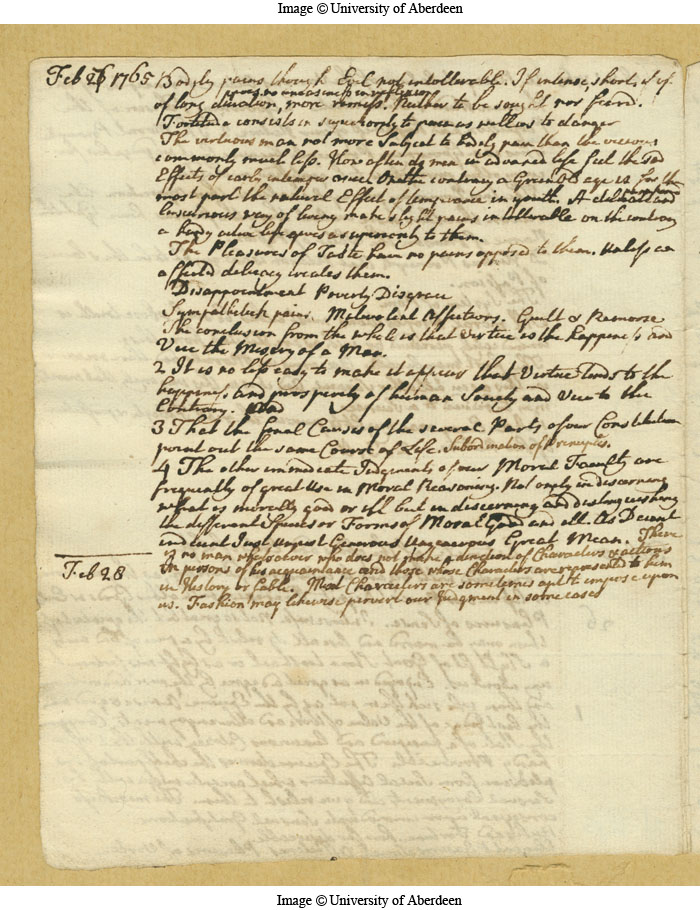 Image © University of Aberdeen
Feb 26 1765 Bodily pains though Evil not intollerable. If intense, short, & if
gives no uneasiness in reflexion
of long duration, more remiss. Neither to be sought nor feard.
Fortitude consists in superiority to pain as well as to danger
The virtuous man not more Subject to bodily pain than the vicious,
commonly much less. How often do men in advanced life feel the sad
Effects of early intemperance. On the contrary a Green Old age is for the
most part the natural Effect of temperance in youth. A delicate and
luxurious way of living makes slight pains intollerable on the contrary
a hardy active life gives a superiority to them.
The Pleasures of Taste have no pains opposed to them. Unless an
affected delicacy creates them.
Disappointment Poverty Disgrace
Sympathetick pains. Malevolent Affections. Guilt & Remorse
The conclusion from the whole is that Virtue is the Happiness and
Vice the Misery of a Man.
2 It is no less easy to make it appear that Virtue tends to the
happiness and prosperity of human Society and Vice to the
Contrary.
3 That the final Causes of the several Parts of our Constitution
point out the same Course of Life. Subordination of Principles.
4 The other immediate Judgments of our Moral Faculty are
frequently of great Use in Moral Reasoning. Not only in discerning
what is morally good or ill but in discerning and distinguishing
the different Species or Forms of Moral Good and ill. As Decent
indecent Just Unjust Generous Ungenerous Great Mean. There
is no man whatsoever who does not make a distinction of Characters & actions
Feb 28 in persons of his acquaintance and those whose Characters are represented to him
in History or fable. Mixd Characters are sometimes apt to impose upon
us. Fashion may likewise pervert our Judgment in some cases
Image © University of Aberdeen